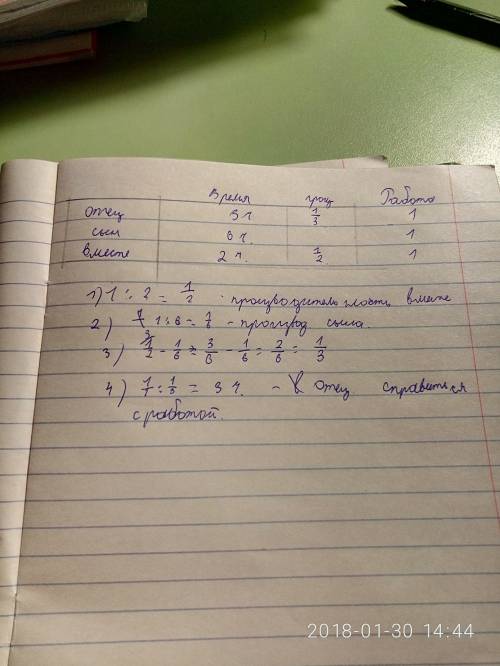 Время произ Работа
Отец 3 ч 1/3 1
сын 6 ч. 1
Вместе 2 ч. 1/2 1
1) 1 : 2 = 1/2 - производительность вместе
2) 1 : 6 = 1/6 - производ. сына.
3) 1/2 - 1/6 = 3/6 - 1/6 = 2/6 = 1/3
4) 1/1 : 1/3 = 3 ч. - отец справиться
с работой.
2018-01-30 14:44